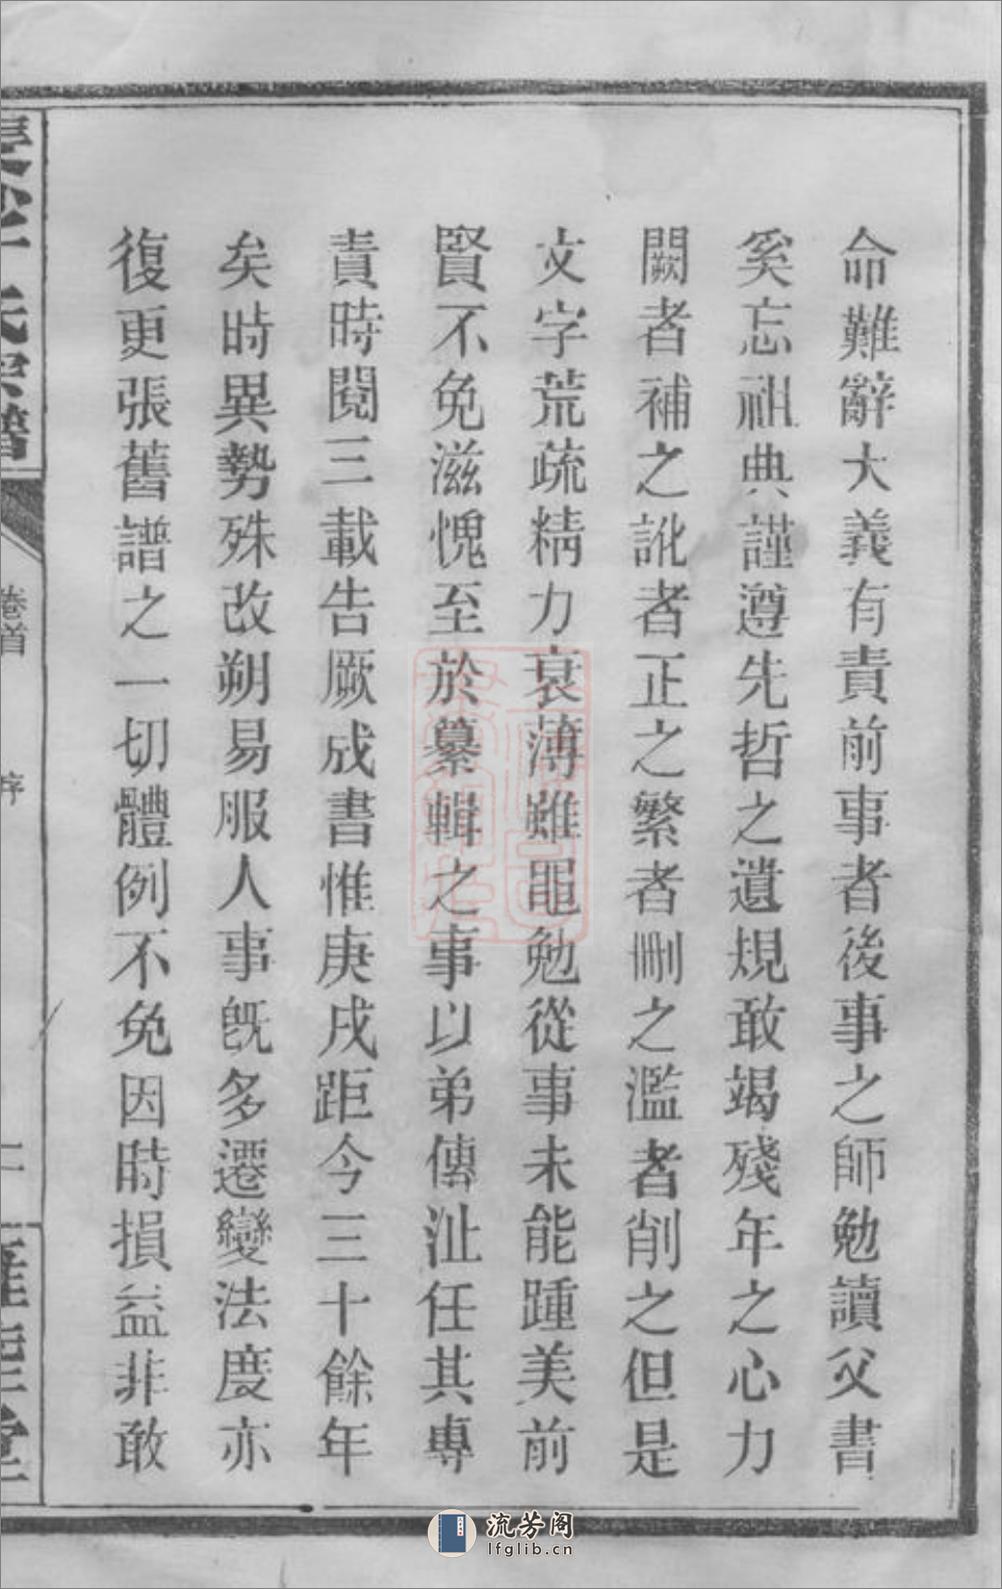 命難辭大義有責前事者後事之師勉讀父書
奚忘祖典謹遵先哲之遺規敢竭殘年之心力
闕者補之訛者正之繁者刪之濫者削之但是
文字荒疏精力衰薄雖黽勉從事未能踵美前
賢不免滋愧至於纂輯之事以弟傳沚任其專
責時閱三載告厥成書惟庚戌距今三十餘年
矣時異勢殊改朔易服人事旣多遷變法度亦
復更張舊譜之一切體例不免因時損益非敢
氏宗譜
卷首
序
二
堂
流芳阁
lfglib.cn